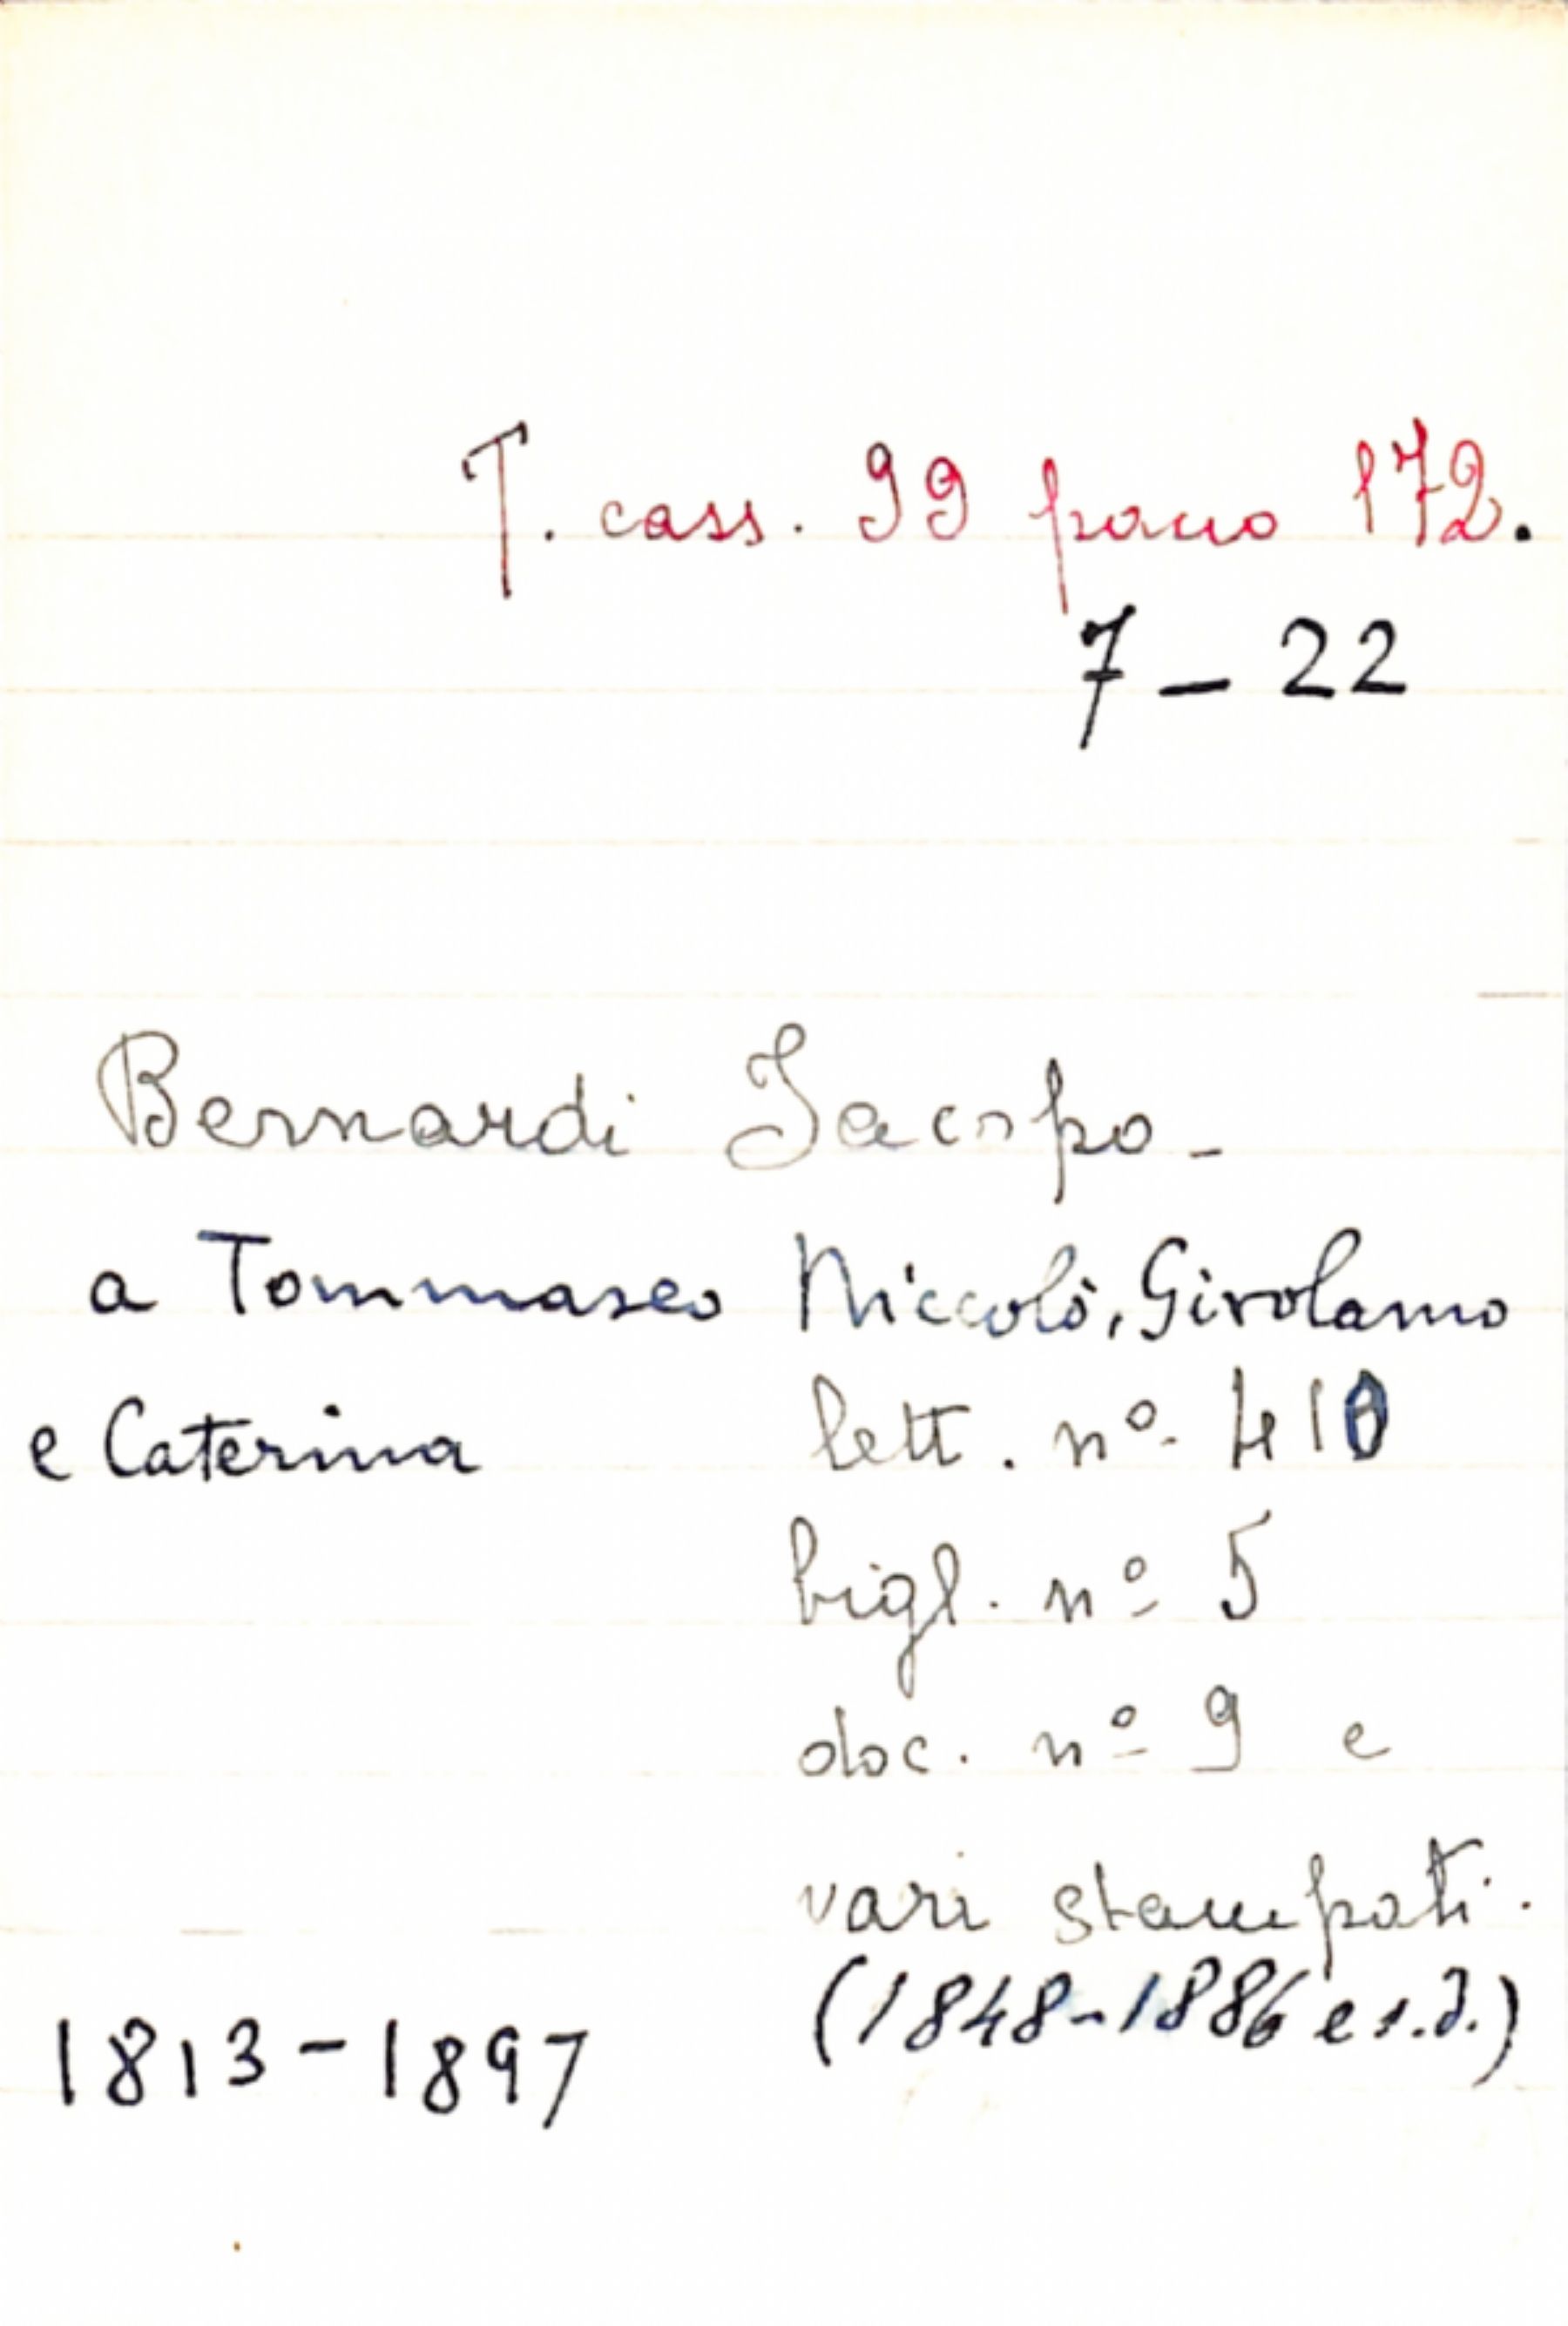 T. cass. 99 pacco 172.
7 - 22
Bernardi Jacopo -
a Tommaseo Niccolò, Girolamo
e Caterina lett. nº. 410
bigl. nº 5
doc. nº 9 e
vari stampati.
(1848-1886 e s.d.)
1813-1897